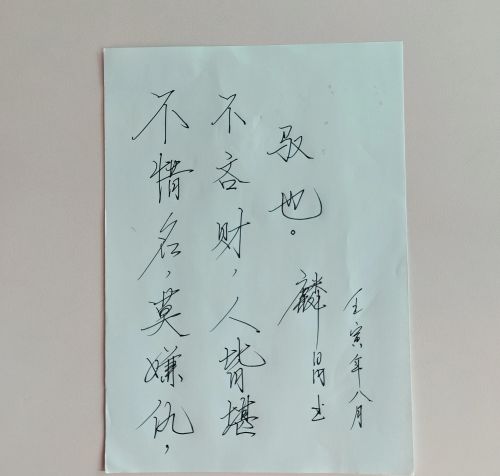 不惜名，莫嫌仇，
不吝财，人皆堪
驭也。麟昌书
壬寅年八月